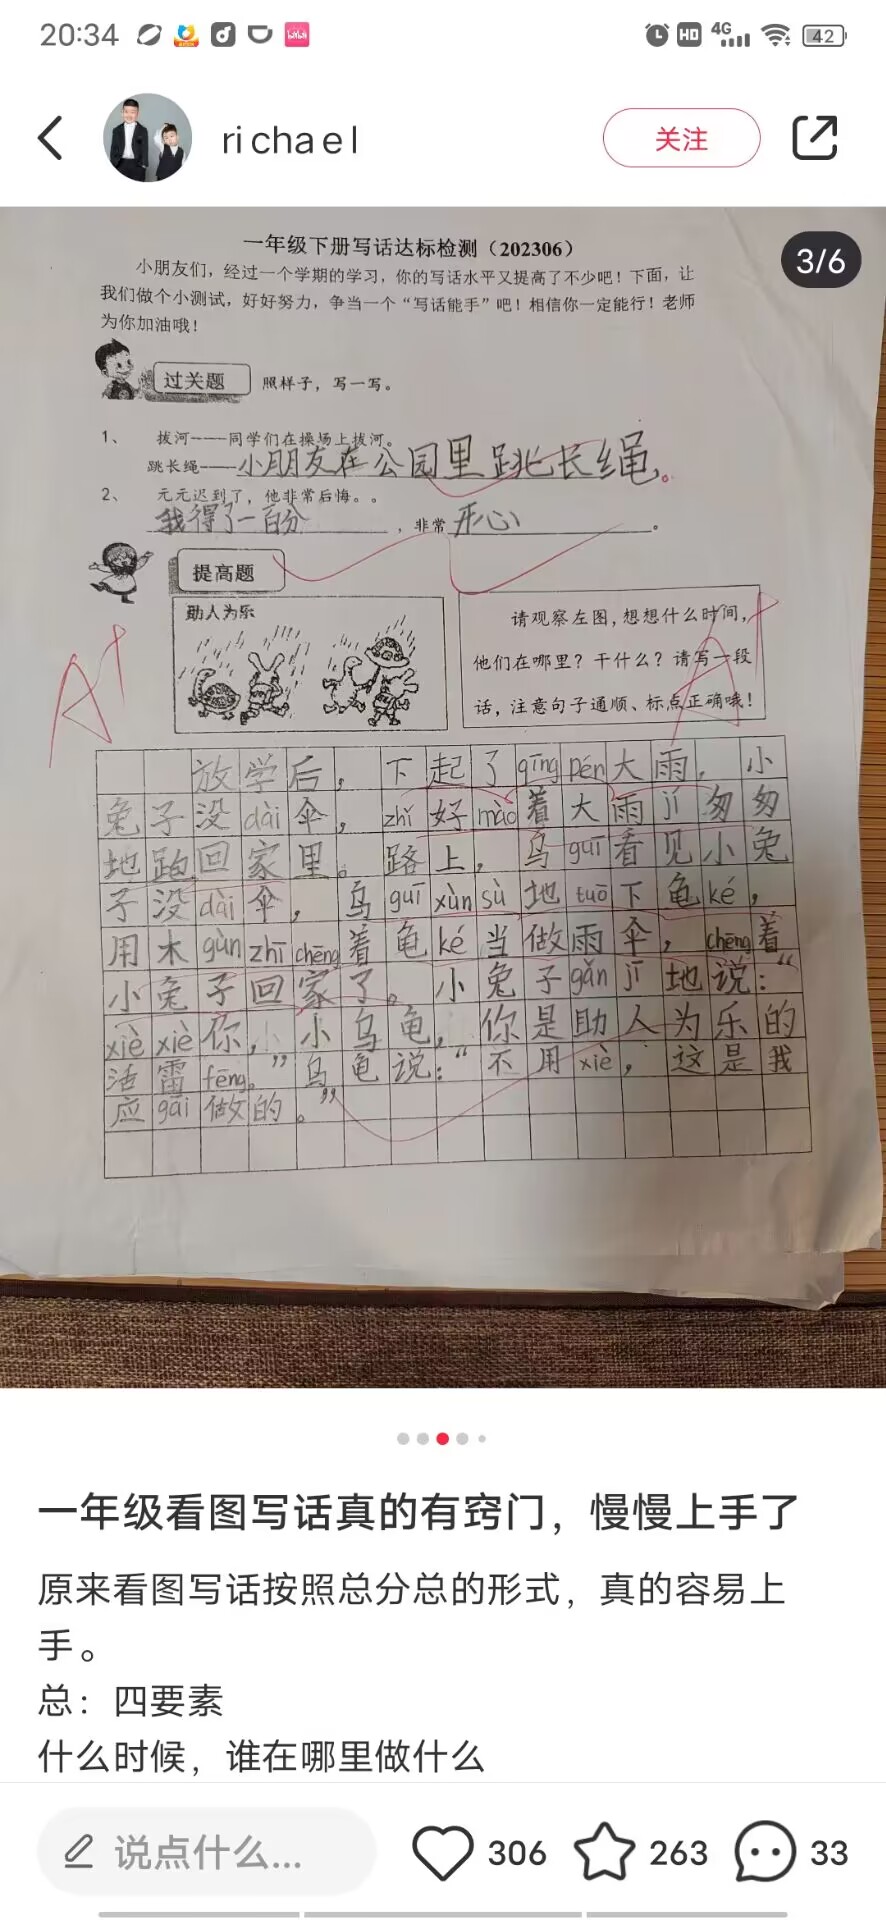 20:34
HD 4G 42
richael
关注
3/6
一年级下册写话达标检测（202306）
小朋友们，经过一个学期的学习，你的写话水平又提高了不少吧！下面，让
我们做个小测试，好好努力，争当一个“写话能手”吧！相信你一定能行！老师
为你加油哦！
过关题 照样子，写一写。
1、 拔河——同学们在操场上拔河。
跳长绳——小朋友在公园里跳长绳。
2、 元元迟到了，他非常后悔。。
我得了一百分，非常开心。
提高题
助人为乐
请观察左图，想想什么时间，
他们在哪里？干什么？请写一段
话，注意句子通顺、标点正确哦！
A+
A+
放学后，下起了qīng pén大雨，小
兔子没dài伞，zhǐ好mào着大雨jí匆匆
地跑回家里。路上，乌guī看见小兔
子没dài伞，乌guī xùn sù地tuō下龟ké，
用木gùn zhī chēng着龟ké当做雨伞，chēng着
小兔子回家了。小兔子gǎn jī地说：“
xiè xiè你，小乌龟，你是助人为乐的
活雷fēng。”乌龟说：“不用xiè，这是我
应gāi做的。”
一年级看图写话真的有窍门，慢慢上手了
原来看图写话按照总分总的形式，真的容易上
手。
总：四要素
什么时候，谁在哪里做什么
说点什么... 306 263 33